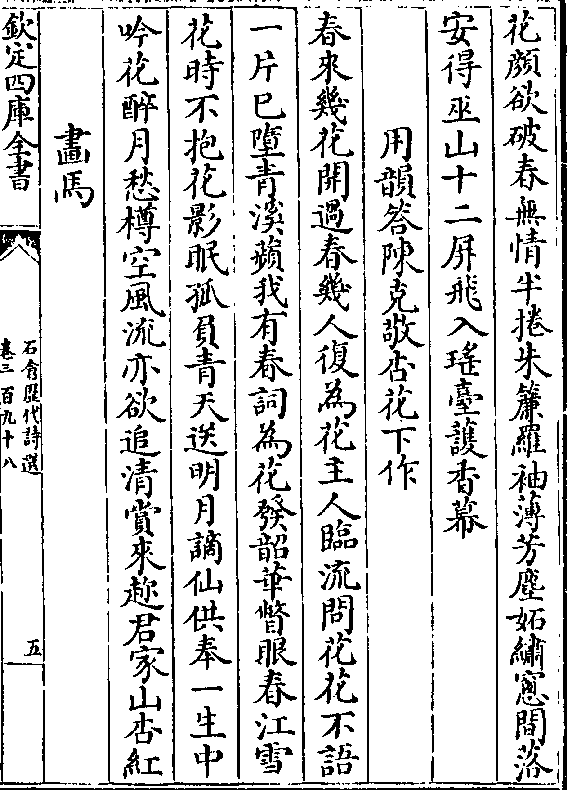 花顔欲破春無情半捲朱簾羅袖薄芳塵妬繡窻間落
安得巫山十二屏飛入瑤臺䕶香幕
用韻答陳克敬杏花下作
春來幾花開過春幾人復為花主人臨流問花花不語
一片已墮青溪蘋我有春詞為花發韶華瞥眼春江雪
花時不抱花影眠孤負青天送明月謫仙供奉一生中
吟花醉月愁樽空風流亦欲追清賞來趂君家山杏紅
畫馬
欽定四庫全書
石倉歷代詩選
卷三百九十八
五